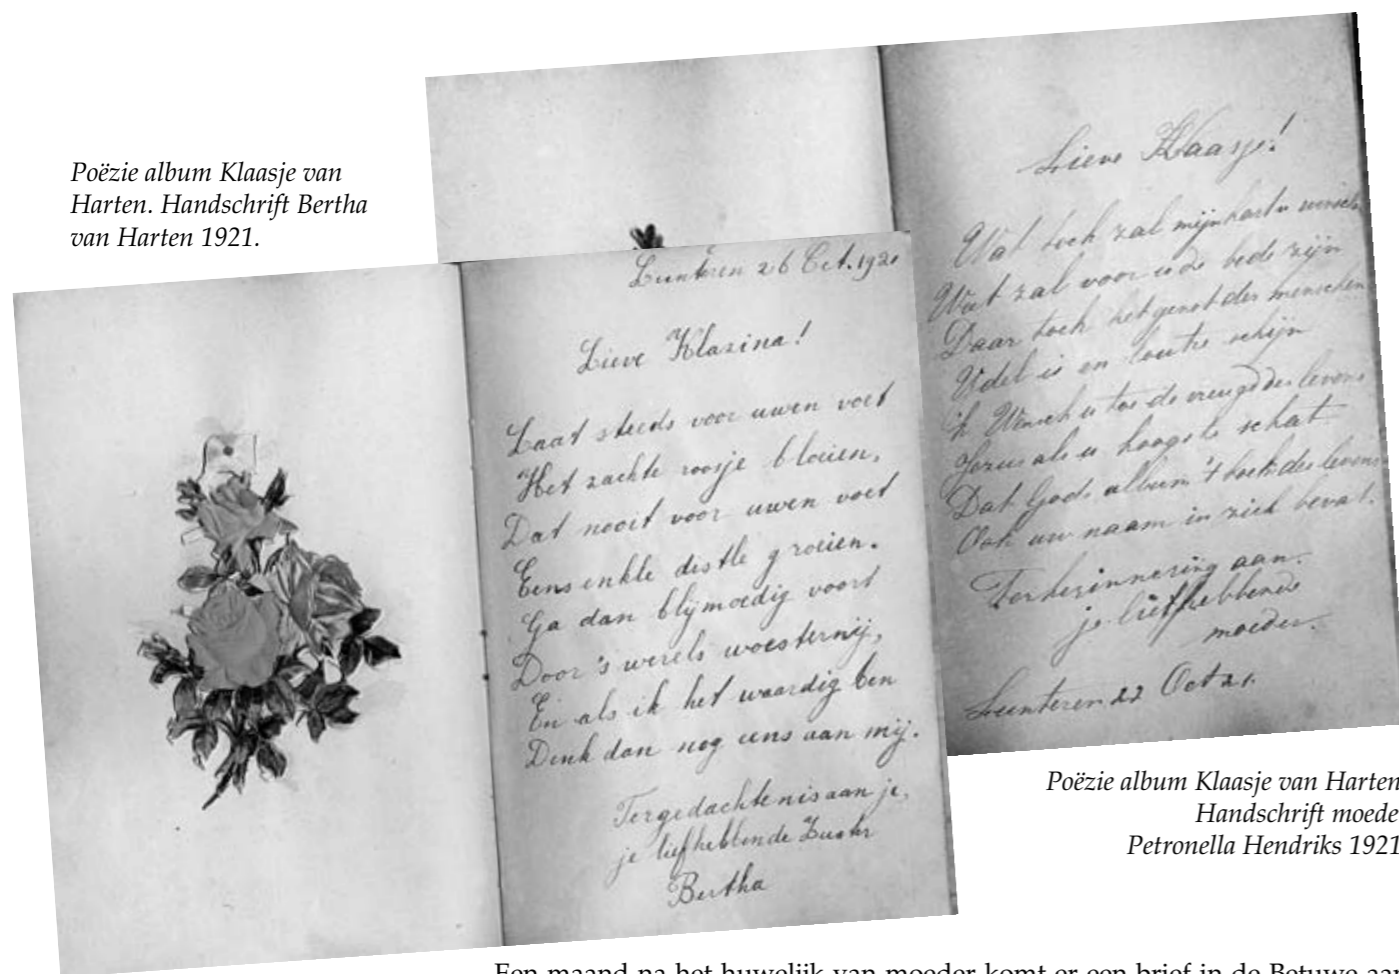 Poëzie album Klaasje van
Harten. Handschrift Bertha
van Harten 1921.
Lunteren 26 Oct. 192
Lieve Klazina!
Laat steeds voor uwen voet
Het zachte roosje bloeien,
Dat nooit voor uwen voet
Eens enkle distle groeien.
Ga dan blijmoedig voort
Door 's werels woesternij,
En als ik het waardig ben
Denk dan nog eens aan mij.
Ter gedachtenis aan je,
je liefhebbende Zustr
Bertha
Lieve Klaasje!
Wat toch zal mijn hart u wensch
Wat zal voor u de bede zijn
Daar toch het genot der menschen
IJdel is en loutre schijn
ik Wensch u toe de vreugd des levens
Jezus als u hoogste schat
Dat Gods album 't boek des levens
Ook uw naam in zich bevat.
Ter herinnering aan.
je liefhebbende
moeder.
Lunteren 22 Oct 21.
Poëzie album Klaasje van Harten
Handschrift moede
Petronella Hendriks 1921
Een maand na het huwelijk van moeder komt er een brief in de Betuwe a